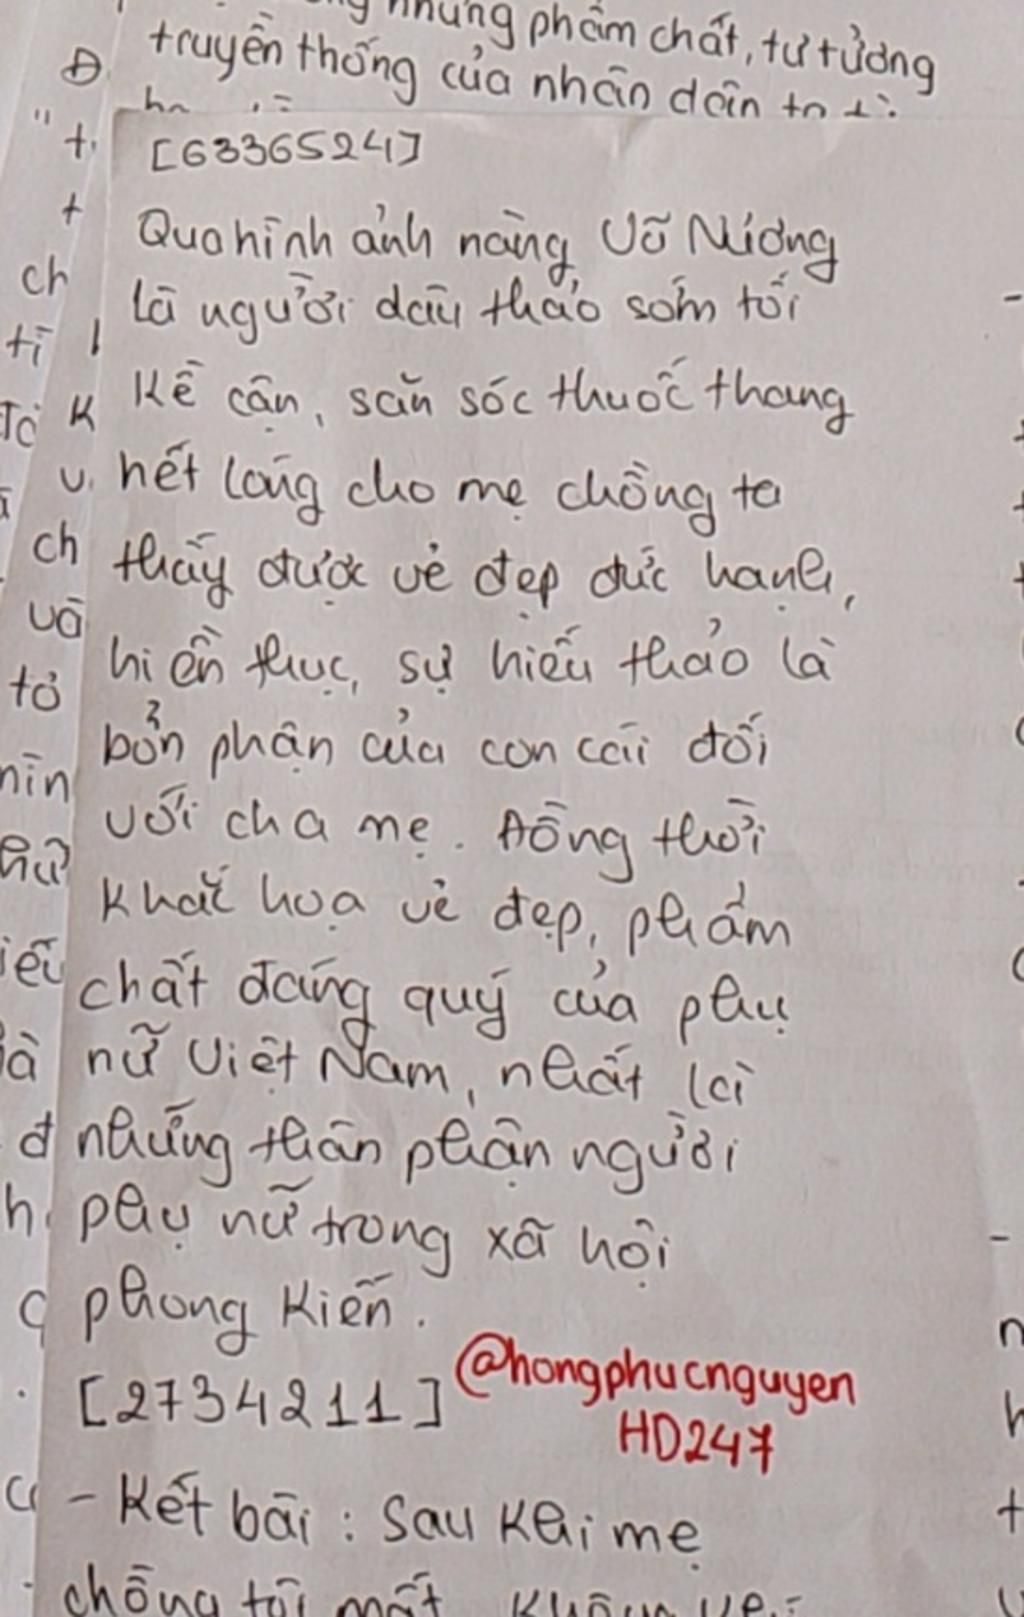 những phẩm chất, tư tưởng
truyền thống của nhân dân ta
[63365241]
Qua hình ảnh nàng Vũ Nương
là người dâu thảo sớm tối
Kề cận, săn sóc thuốc thang
hết lòng cho mẹ chồng ta
thấy được vẻ đẹp đức hạnh,
hiền thục, sự hiếu thảo là
bổn phận của con cái đối
với cha mẹ. Đồng thời
Khắc hoạ vẻ đẹp, phẩm
chất đáng quý của phụ
nữ Việt Nam, nhất là
những thân phận người
phụ nữ trong xã hội
phong Kiến.
[2734211]
@hongphucnguyen
HD247
- Kết bài: Sau Khi mẹ
chồng tôi mất